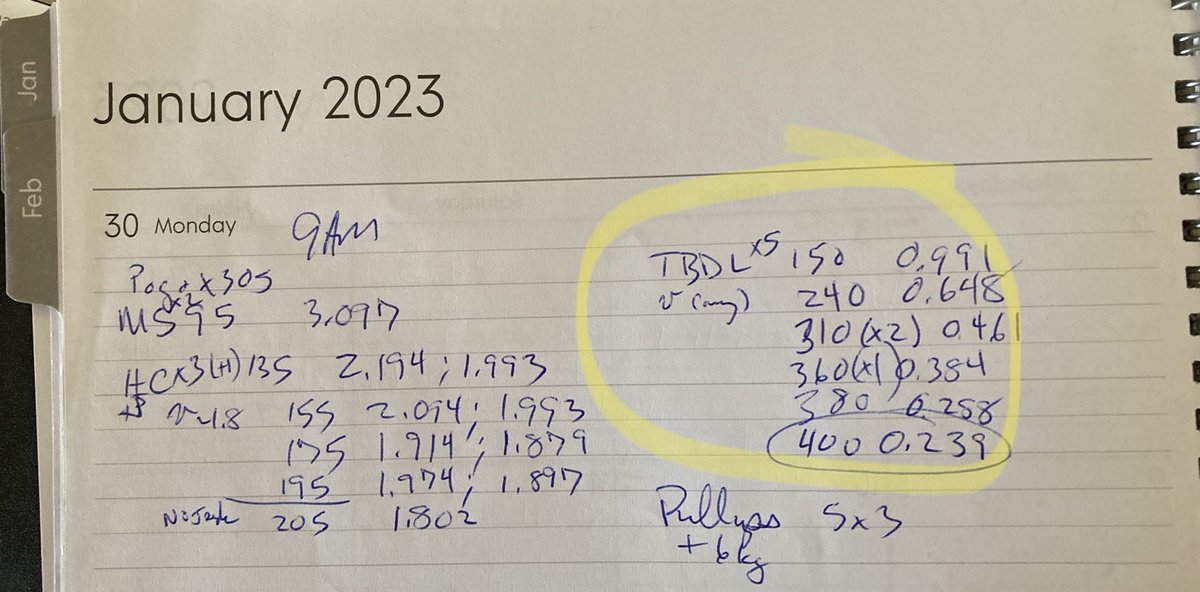 Jan
Feb
January 2023
30 Monday 9AM
Pogo x 30s
MS x2 95 3.097
HC x3 (H) 135 2.194 ; 1.993
v~1.8 155 2.094 ; 1.993
175 1.914 ; 1.879
195 1.974 ; 1.897
205 1.802
TBDL x5 150 0.991
v (avg) 240 0.648
310 (x2) 0.461
360 (x1) 0.384
380 0.258
400 0.239
Pullups 5x3
+6kg